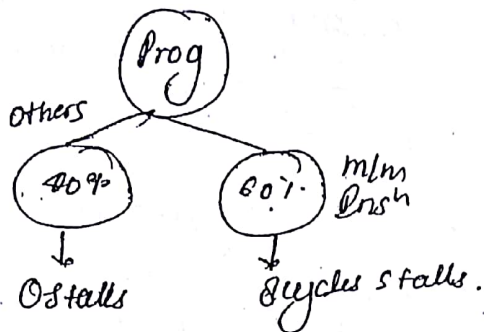 Prog
Others
40%
60%
m/m
Insn
0 stalls
8 cycles stalls.